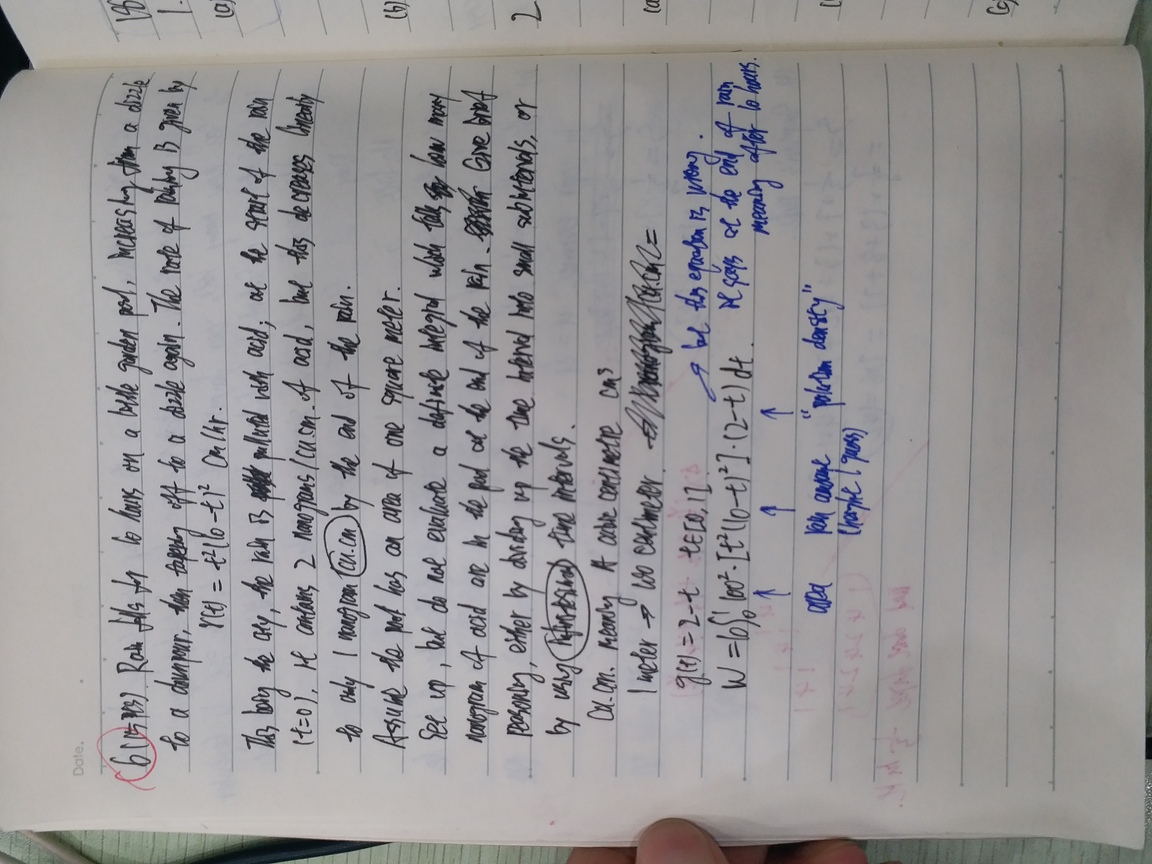 Date.
6 (15 pts). Rain falls for 10 hours on a little garden pool, increasing from a dizzle
to a downpour, then tapering off to a dizzle again. The rate of raining is given by
r(t) = t²(10-t)² cm/hr.
This being the city, the rain is polluted with acid; at the start of the rain
(t=0), it contains 2 nanograms/cu.cm. of acid, but this decreases linearly
to only 1 nanogram/cu.cm by the end of the rain.
Assume the pool has an area of one square meter.
Set up, but do not evaluate a definite integral which tells how many
nanogram of acid are in the pool at the end of the rain. Give brief
reasoning, either by dividing up the time interval into small subintervals, or
by using infinitesimal time intervals.
Cu.cm. meaning A cubic centimetre cm³
1 meter → 100 centimeter. =
g(t) = 2-t t∈[0,1].
→ but this equation is wrong.
W = 10∫₀¹ 100²·[t²(10-t)²]·(2-t) dt.
It says at the end of rain
meaning after 10 hours.
area
rain amount
(height I guess)
"polution density"
198
1.
(a)
(b)
2
(a
(c)